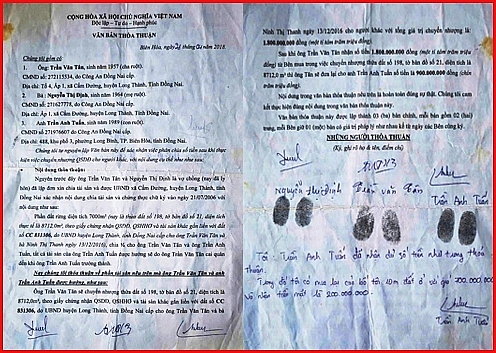 CỘNG HÒA XÃ HỘI CHỦ NGHĨA VIỆT NAM
Độc lập – Tự do – Hạnh phúc
VĂN BẢN THỎA THUẬN
Biên Hòa, ngày 26 tháng 2018
Chúng tôi gồm có:
1 Ông: Trần Văn Tân, sinh năm 1957 (cha ruột)
CMND số: 272115534, do Công An Đồng Nai cấp.
Địa chỉ: Tổ 4, Ấp 1, xã Cẩm Đường, huyện Long Thành, Tỉnh Đồng Nai.
2 Bà: Nguyễn Thị Định, sinh năm 1964 (mẹ ruột).
CMND số: 271627778, do Công an Đồng Nai cấp.
Địa chỉ: Ấp 1, xã Cẩm Đường, huyện Long Thành, Tỉnh Đồng Nai.
3 Anh: Trần Anh Tuấn, sinh năm 1989 (con ruột).
CMND số: 271976607 do Công An Đồng Nai cấp.
Địa chỉ: 488, khu phố 3, phường Long Bình, TP. Biên Hòa, tỉnh Đồng Nai.
Chúng tôi tự nguyện lập Văn bản này để xác nhận việc phân chia số tiền sau khi thực
hiện việc chuyển nhượng QSDĐ cho người khác, với nội dung cụ thể như sau:
Nội dung thỏa thuận:
Nguyên trước đây ông Trần Văn Tân và Nguyễn Thị Định là vợ chồng (nay đã ly
hôn) đã lập đơn xin chia tài sản và được UBND xã Cẩm Đường, huyện Long Thành, Tỉnh
Đồng Nai xác nhận nội dung chia tài sản và chứng thực chữ ký vào ngày 21/07/2006 với
nội dung như sau:
Phần đất rừng diện tích 7000m2 (nay là thửa đất số 198, tờ bản đồ số 21, diện tích
thực tế là 8712,0 m2, theo giấy chứng nhận QSDĐ, QSHNO và tài sản khác gắn liền với đất
số CC 831306, do UBND huyện Long Thành, tỉnh Đồng Nai cấp cho ông Trần Văn Tân và
bà Ninh Thị Thanh ngày 13/12/2016), chia ½ cho ông Trần Văn Tân và ông Trần Anh
Tuấn, tất cả tài sản của ông Trần Anh Tuấn được chia thì giao cho ông Trần Văn Tân cai quản
đến khi ông Trần Anh Tuấn trưởng thành.
Nay chúng tôi thỏa thuận về phần tài sản nêu trên mà ông Trần Văn Tân và anh
Trần Anh Tuấn được hưởng, như sau:
Ông Trần Văn Tân sẽ chuyển nhượng thửa đất số 198, tờ bản đồ số 21, diện tích là
8712,0m2, theo giấy chứng nhận QSDĐ, QSHNO và tài sản khác gắn liền với đất số CC
831306, do UBND huyện Long Thành, tỉnh Đồng Nai cấp cho ông Trần Văn Tân và bà
Ninh Thị Thanh ngày 13/12/2016 cho người khác với tổng giá trị chuyển nhượng là:
1.800.000.000 đồng (một tỉ tám trăm triệu đồng).
Sau khi ông Trần Văn Tân nhận đủ số tiền 1.800.000.000 đồng (một tỉ tám trăm triệu đồng) từ
Bên mua trong việc chuyển nhượng thửa đất số 198, tờ bản đồ số 21, diện tích là
8712,0 m2 thì ông Trần Văn Tân sẽ đưa lại cho anh Trần Anh Tuấn số tiền là 900.000.000 đồng (chín
trăm triệu đồng).
Nội dung trong văn bản thỏa thuận nêu trên là hoàn toàn đúng sự thật. Chúng tôi cam
kết thực hiện đúng nội dung trong văn bản thỏa thuận này.
Văn bản thỏa thuận này được lập thành 03 (ba) bản chính, mỗi bản gồm 02 (hai)
trang, mỗi Bên giữ 01 (một) bản có giá trị pháp lý như nhau kể từ ngày các Bên cùng ký.
NHỮNG NGƯỜI THỎA THUẬN
(Ký, ghi rõ họ & tên, điểm chỉ)
Nguyễn Thị Định Trần Văn Tân Trần Anh Tuấn
Tôi: Trần Anh Tuấn đã nhận đủ số tiền như trong thỏa
Thuận.
200.000.000
200.000.000.
Trần Anh Tuấn